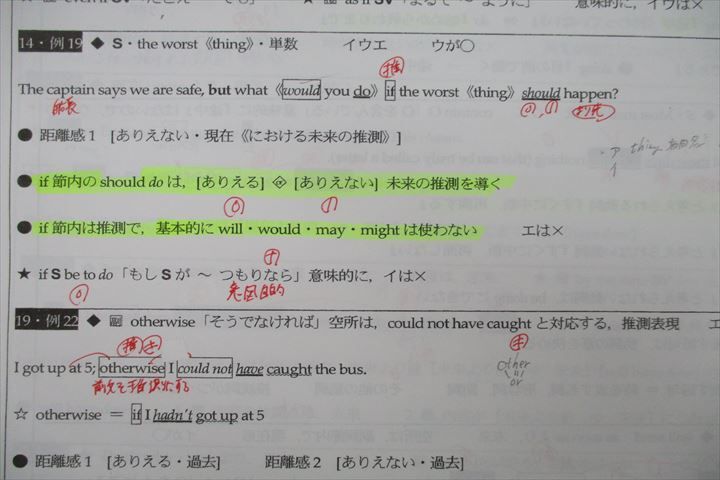 意味的に，イウは×
14・例19 ◆ S・the worst《thing》・単数 イウエ ウが○
推
The captain says we are safe, but what《would you do》if the worst《thing》should happen?
船長
● 距離感1 [ありえない・現在《における未来の推測》]
● if 節内の should do は，[ありえる] [ありえない] 未来の推測を導く
● if 節内は推測で，基本的に will・would・may・might は使わない エは×
★ if S be to do「もし S が ～ つもりなら」意味的に，イは×
意図的
19・例22 ◆ 副 otherwise「そうでなければ」空所は，could not have caught と対応する，推測表現 エ
I got up at 5; otherwise I could not have caught the bus.
other
or
☆ otherwise = if I hadn't got up at 5
● 距離感1 [ありえる・過去] 距離感2 [ありえない・過去]